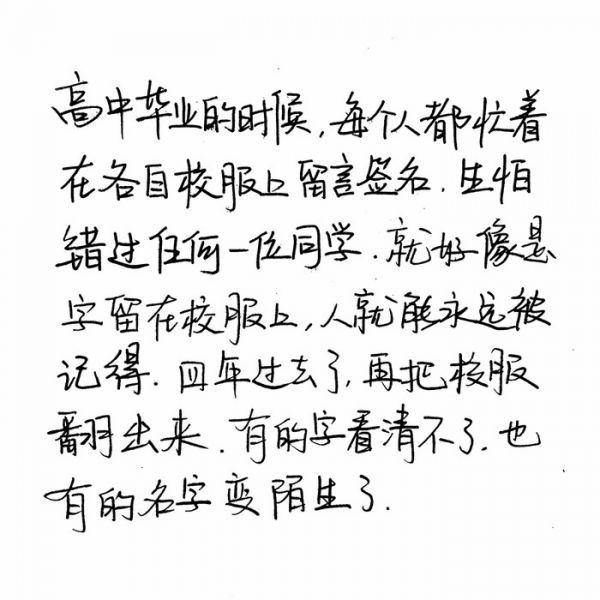 高中毕业的时候,每个人都忙着
在各自校服上留言签名.生怕
错过任何一位同学.就好像是
字留在校服上,人就能永远被
记得.四年过去了,再把校服
翻出来.有的字看清不了.也
有的名字变陌生了.